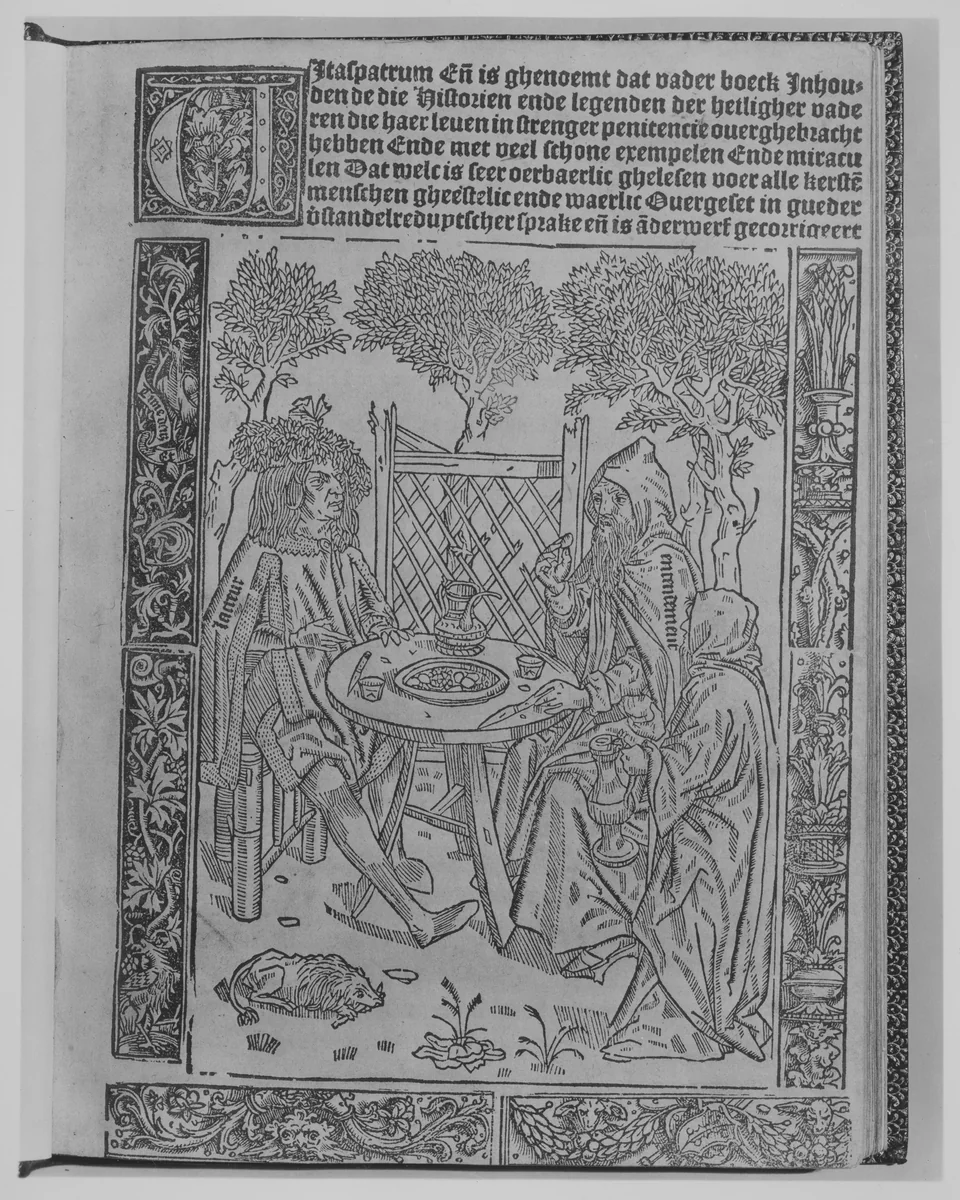 VItaspatrum En̄ is ghenoemt dat vader boeck Inhou⸗
den de die Historien ende legenden der heiligher vade
ren die haer leuen in strenger penitencie ouerghebracht
hebben Ende met veel schone exempelen Ende miracu
len Dat welc is seer oerbaerlic ghelesen voer alle kerstē
menschen gheestelic ende waerlic Ouergeset in gueder
v̊standelre duytscher sprake en̄ is āderwerf gecorrigeert
lacteur